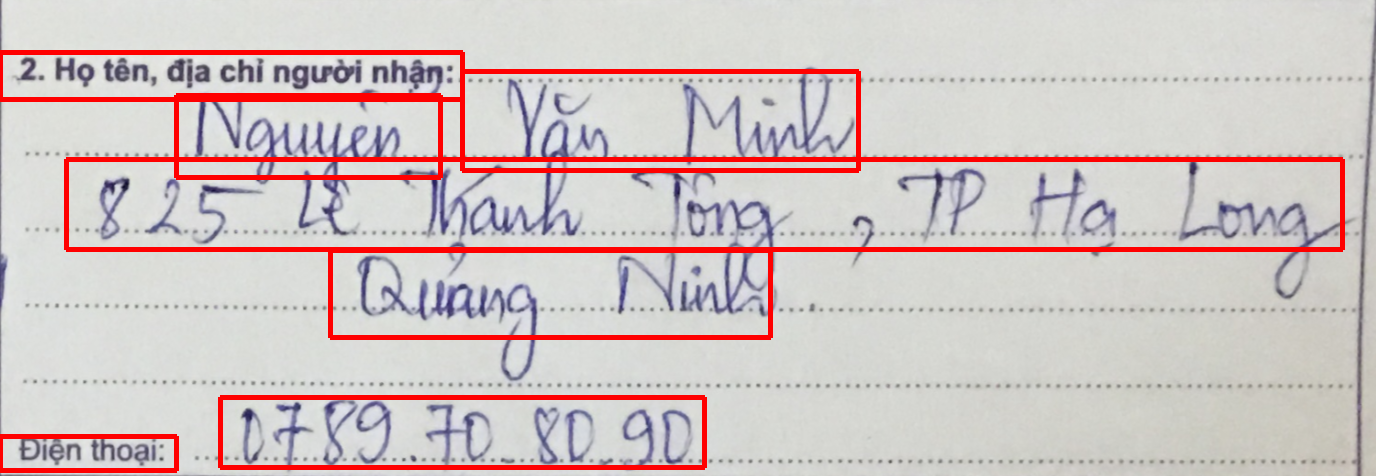 2. Họ tên, địa chỉ người nhận:
Nguyễn Văn Minh
825 Lê Thánh Tông, TP Hạ Long
Quảng Ninh.
Điện thoại: 0789.70.80.90